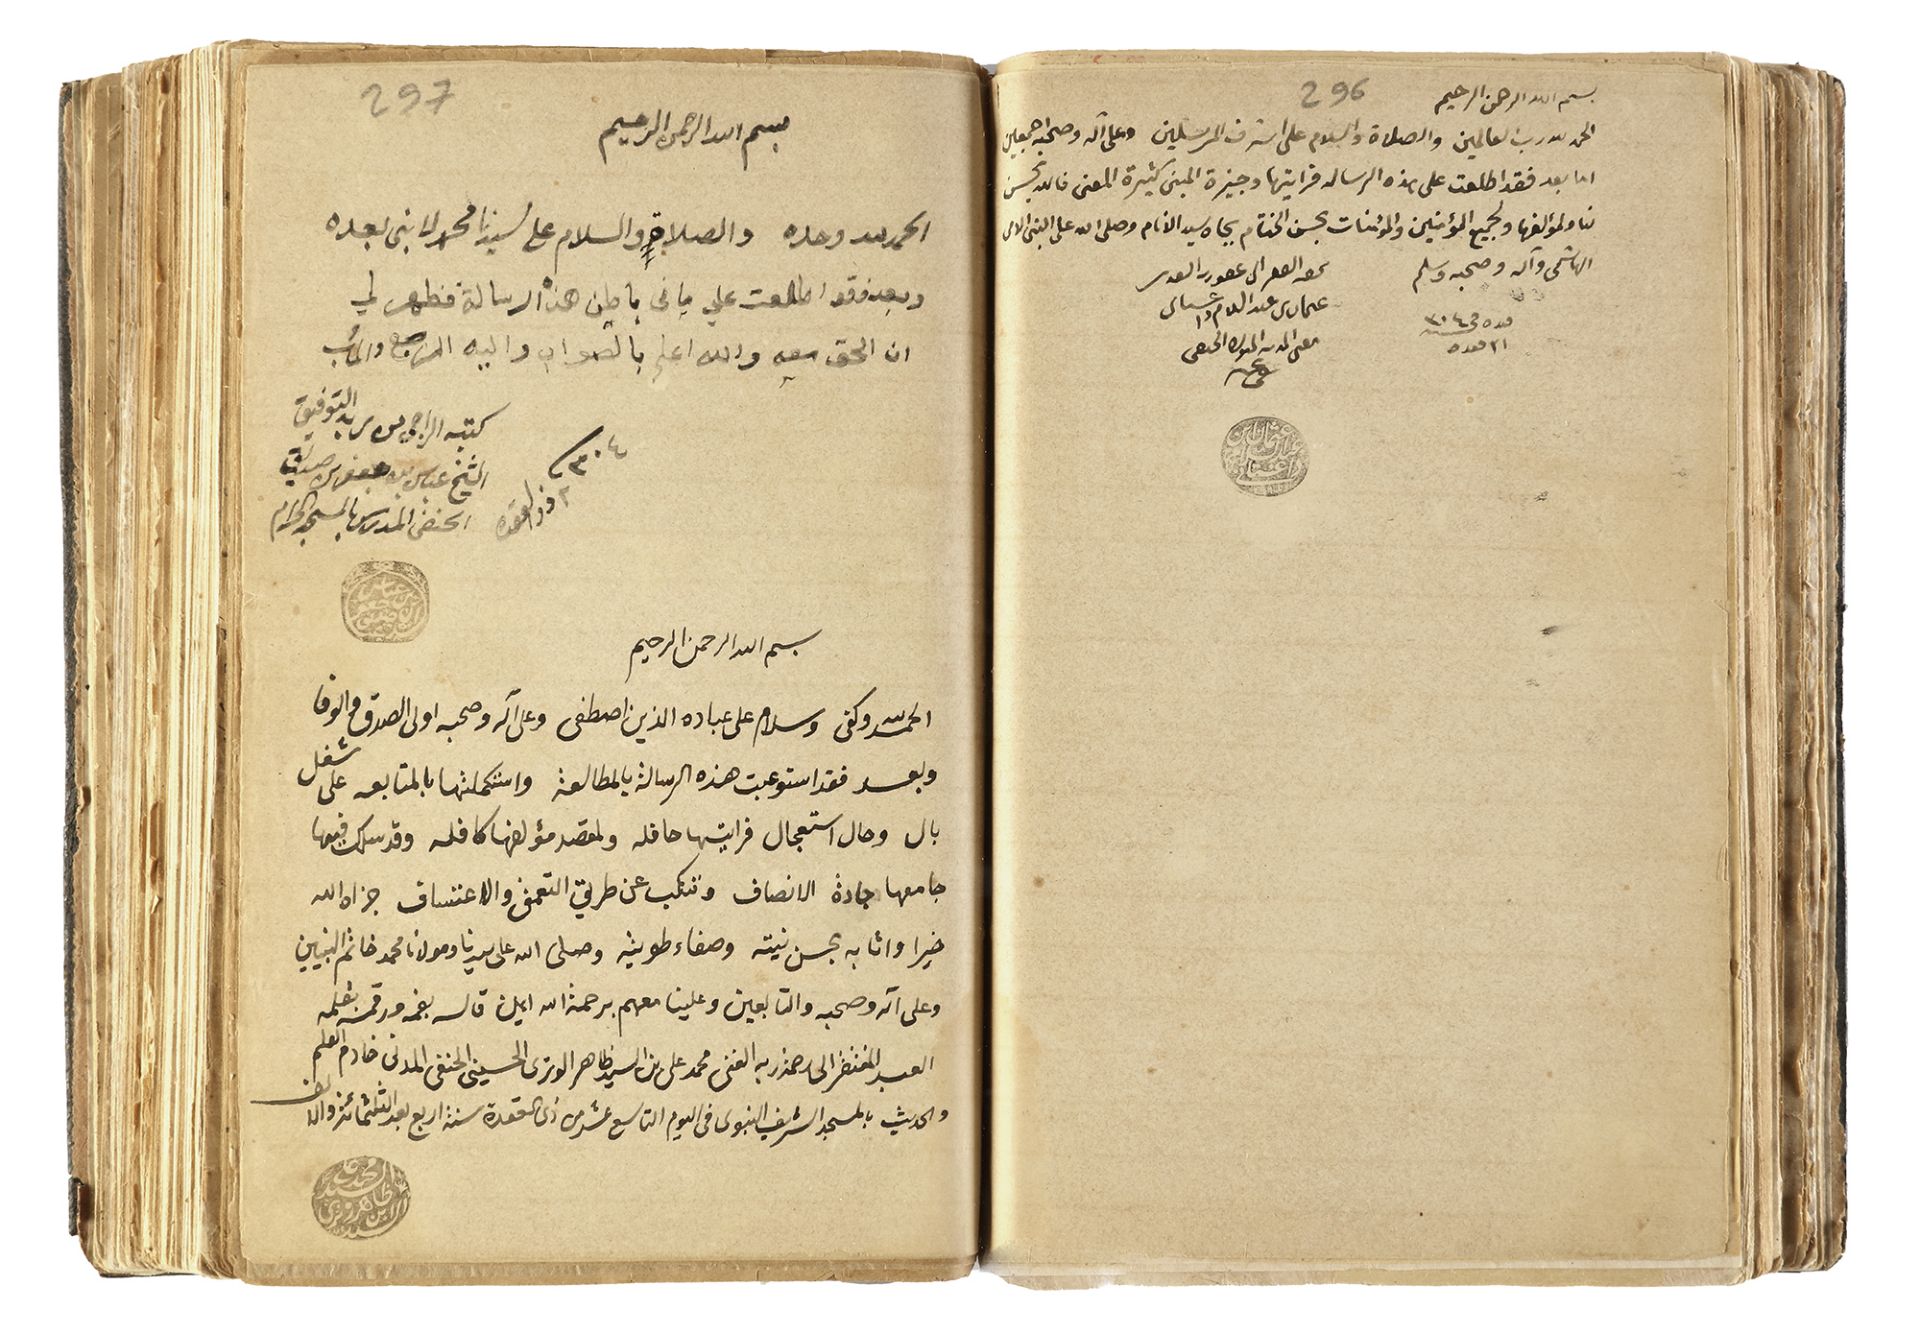 296
بسم الله الرحمن الرحيم
الحمد لله رب العالمين والصلاة والسلام على اشرف المرسلين وعلى آله وصحبه اجمعين
اما بعد فقد اطلعت على هذه الرساله فرايتها وجيزة المبنى كثيرة المعنى فالله يحسن
لنا ولمؤلفها ولجميع المؤمنين والمؤمنات بحسن الختام بجاه سيد الانام وصلى الله على النبى الامى
الهاشمى وآله وصحبه وسلم
عثمان بن عبد السلام داغستانى
مفتى المدينه المنوره الحنفى
عفى عنه
297
بسم الله الرحمن الرحيم
الحمد لله وحده والصلاة والسلام على سيدنا محمد لا نبى بعده
وبعد فقد اطلعت على ما فى باطن هذه الرسالة فظهر لي
ان الحق معه والله اعلم بالصواب واليه المرجع والمآب
كتبه الراجى من ربه التوفيق
الشيخ عباس بن جعفر بن صديق
الحنفى المدرس بالمسجد الحرام
٣٠٤
٢ ذو القعده
بسم الله الرحمن الرحيم
الحمد لله وكفى وسلام على عباده الذين اصطفى وعلى آله وصحبه اولى الصدق والوفا
وبعد فقد استوعبت هذه الرسالة بالمطالعة واستكملتها بالمتابعه على شغل
بال وحال استعجال فرايتها حافله ولمقصد مؤلفها كافله وقد سلك فيها
جامعها جادة الانصاف وتنكب عن طريق التعسف والاعتساف جزاه الله
خيرا واثابه بحسن نيته وصفاء طويته وصلى الله على سيدنا ومولانا محمد خاتم النبيين
وعلى آله وصحبه والتابعين وعلينا معهم برحمة الله امين قاله بفمه ورقمه بقلمه
العبد المفتقر الى رحمة ربه الغنى محمد على بن السيد ظاهر الوترى الحسينى الحنفى المدنى خادم العلم
والحديث بالمسجد الشريف النبوى فى اليوم التاسع عشر من ذى القعدة سنة اربع بعد الثلثمائة والالف